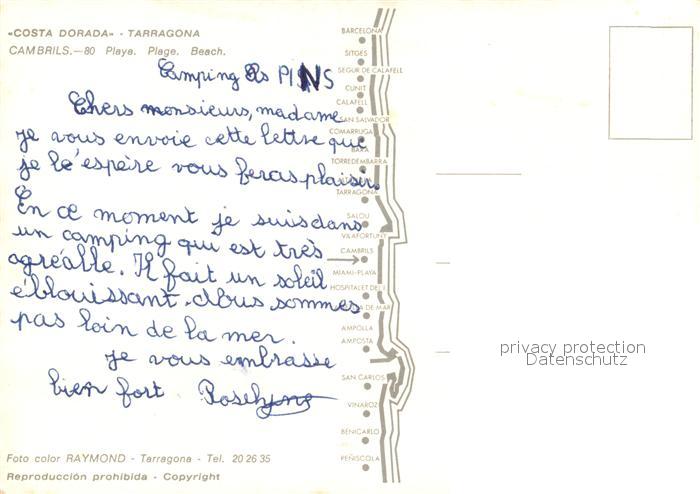 «COSTA DORADA» - TARRAGONA
CAMBRILS.—80 Playa. Plage. Beach.
Camping Els PINS
Chers monsieurs, madame
je vous envoie cette lettre que
je le éspeire vous feras plaisir.
En ce moment je suis dans
un camping qui est très
agréable. Il fait un soleil
éblouissant. Nous sommes
pas loin de la mer.
je vous embrasse
bien fort
Foto color RAYMOND - Tarragona - Tel. 20 26 35
Reproducción prohibida - Copyright
BARCELONA
SITGES
SEGUR DE CALAFELL
CUNIT
CALAFELL
SAN SALVADOR
COMARRUGA
BARA
TORREDEMBARRA
TARRAGONA
SALOU
VILAFORTUNY
CAMBRILS
MIAMI-PLAYA
HOSPITALET DE I.
DE MAR
AMPOLLA
AMPOSTA
SAN CARLOS
VINAROZ
BENICARLO
PEÑISCOLA
privacy protection
Datenschutz